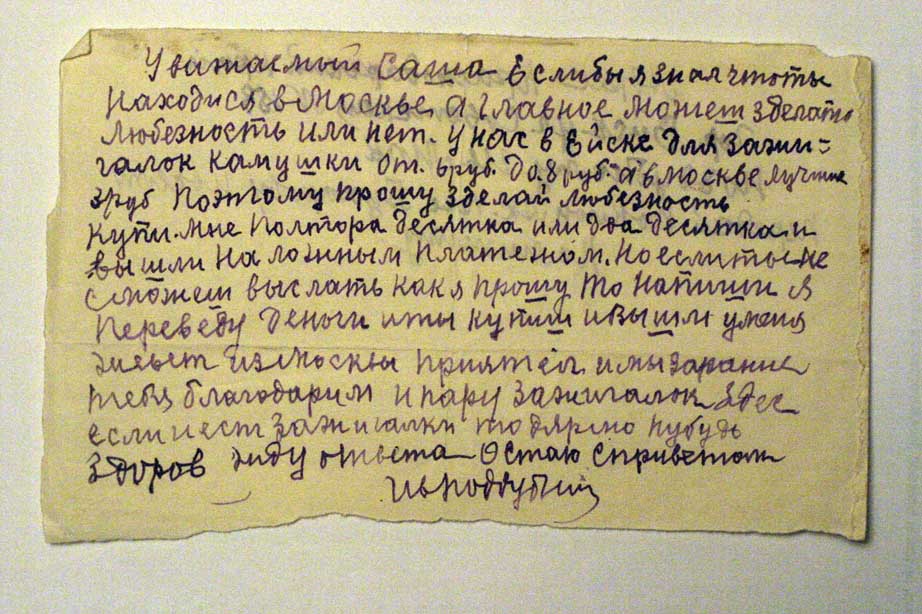 Уважаемый Саша Еслибы я знал чтоты
Находися в Москве, а главное можеш зделать
Любезность или нет. У нас в Ейске для зажи=
галок камушки от. 6 руб. до. 8 руб. а в Москве лучшие
3 руб Поэтому прошу зделай любезность
купи. мне Полтора десятка или два десятка и
вышли На ложным платежом. Но если ты не
сможеш выслать как я прошу то Напиши я
Переведу деньги и ты купиш и вышли у меня
живет из Москвы приятел и мы зарание
тебя благодарим и пару зажигалок
если и ест зажигалки то дярмо
Здоров жду ответа Остаю с приветом
Ив Поддубный